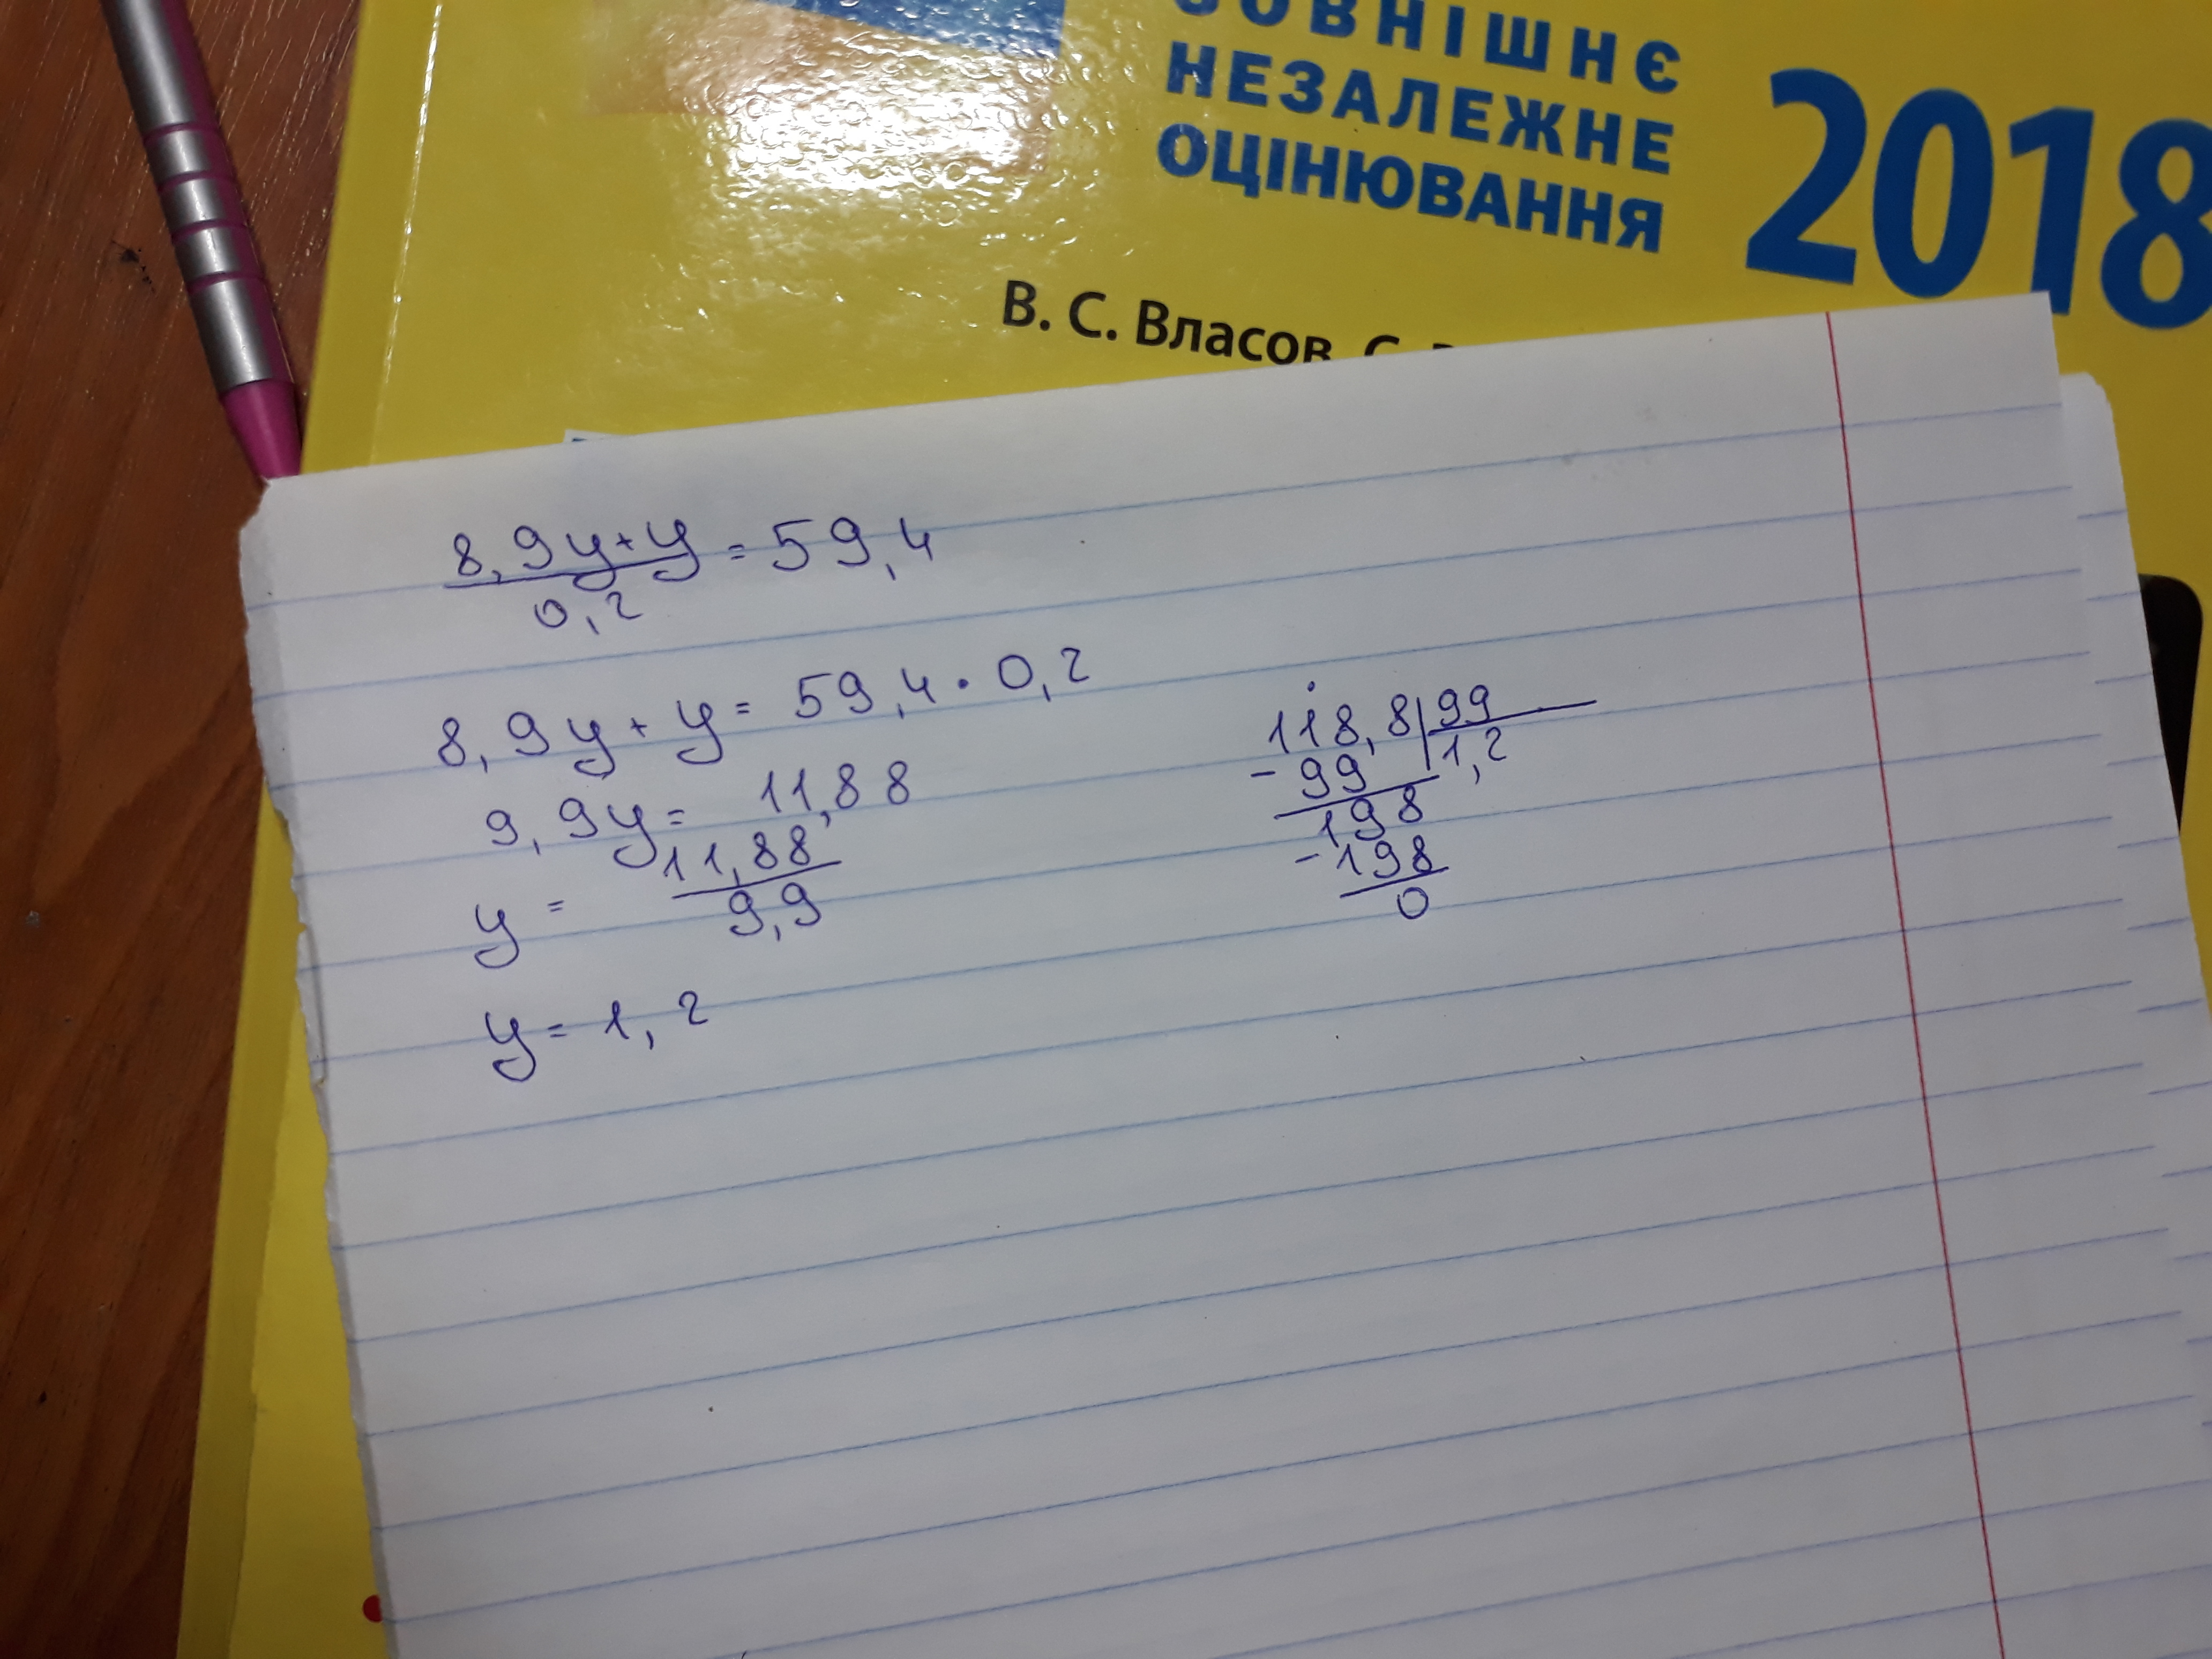 ЗОВНІШНЄ
НЕЗАЛЕЖНЕ
ОЦІНЮВАННЯ
2018
В. С. Власов, С.
8,9y+y = 59,4
0,2
8,9y + y = 59,4 · 0,2
9,9y = 11,88
y = 11,88
9,9
y = 1,2
118,8|99
-99 1,2
198
-198
0